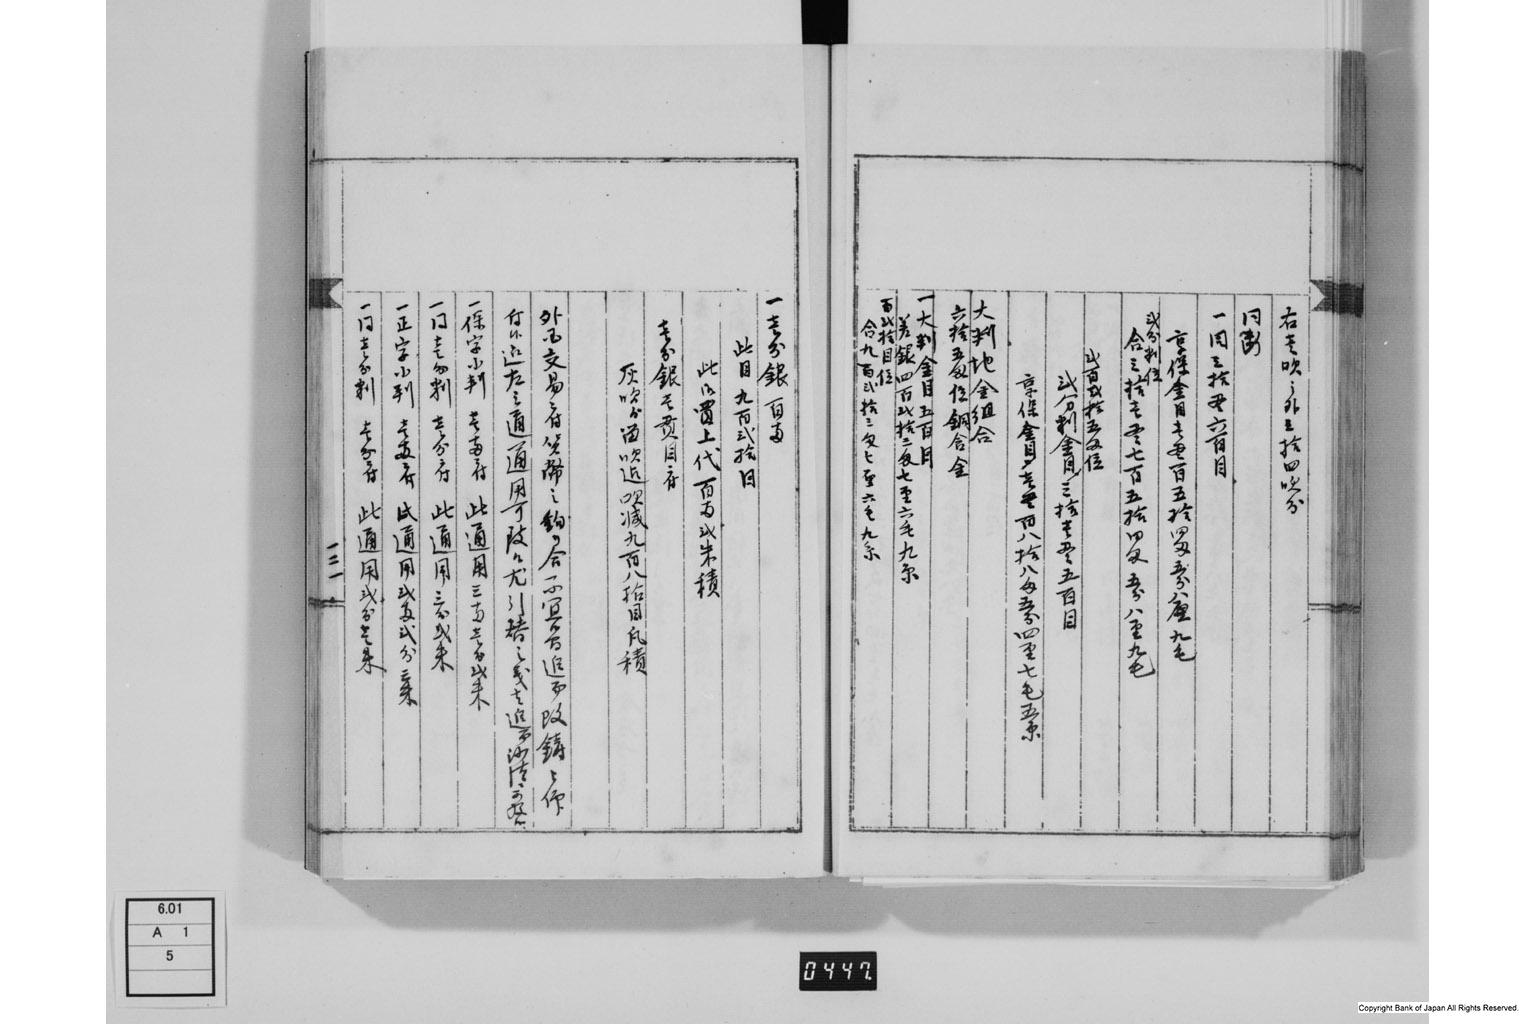 右壱吹之外三拾四吹分
同断
一同三拾貫六百目
享保金目壱貫百五拾四匁五分八厘九毛
弐分判位
合三拾壱貫七百五拾四匁五分八厘九毛
此百弐拾五匁位
弐分判金目三拾壱貫五百目
享保金目壱貫百八拾八匁五分四厘七毛五糸
大判地金組合
六拾五匁位銅含金
一大判金目五百目
差銀四百弐拾二匁七厘六毛九糸
百弐拾目位
合九百弐拾二匁七厘六毛九糸
一壱分銀 百両
此目九百弐拾目
此御買上代百両弐朱積
壱分銀壱貫目ニ付
灰吹分留吹迄吹減九百八拾目凡積
外国交易ニ付貨幣之釣合不宜当追而改鋳被仰
付候迄左之通通用可致尤引替之義者追而沙汰
一保字小判 壱両ニ付 此通用三両壱分弐朱
一同壱分判 壱分ニ付 此通用三分弐朱
一正字小判 壱両ニ付 此通用弐両弐分三朱
一同壱分判 壱分ニ付 此通用弐分壱朱
一三一
0447
6.01
A 1
5
Copyright Bank of Japan All Rights Reserved.